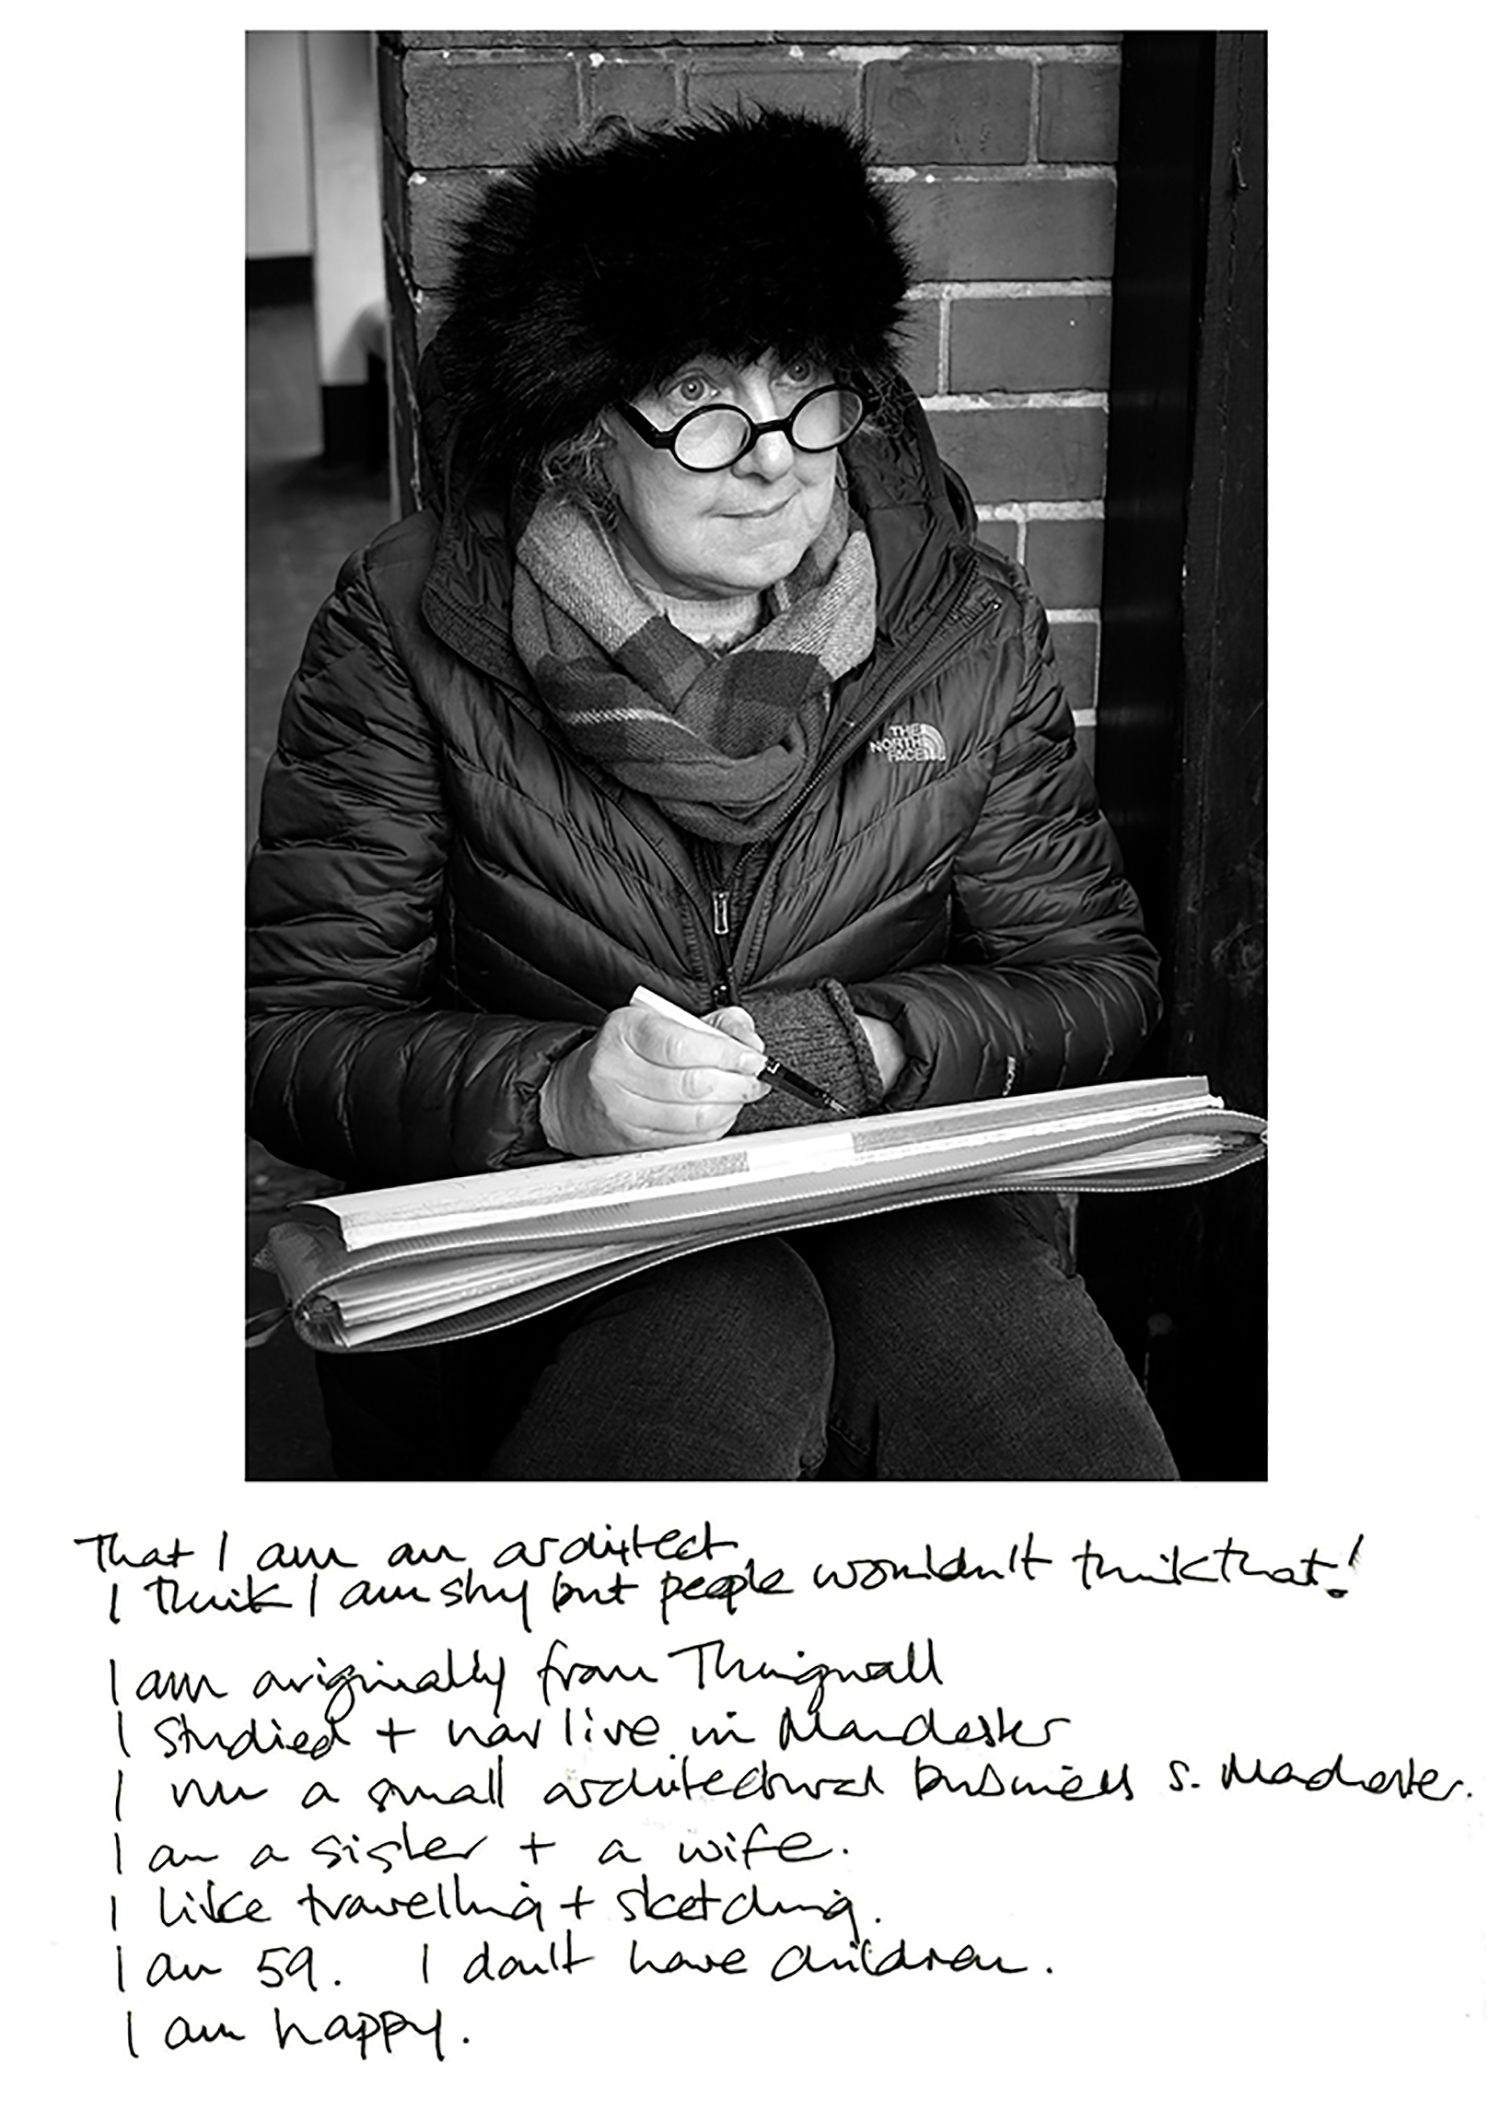 THE
NORTH
FACE
That I am an architect
I think I am shy but people wouldn't think that!
I am originally from Thingwall
I studied + now live in Manchester
I run a small architectural business S. Manchester.
I am a sister + a wife.
I like travelling + sketching.
I am 59. I don't have children.
I am happy.